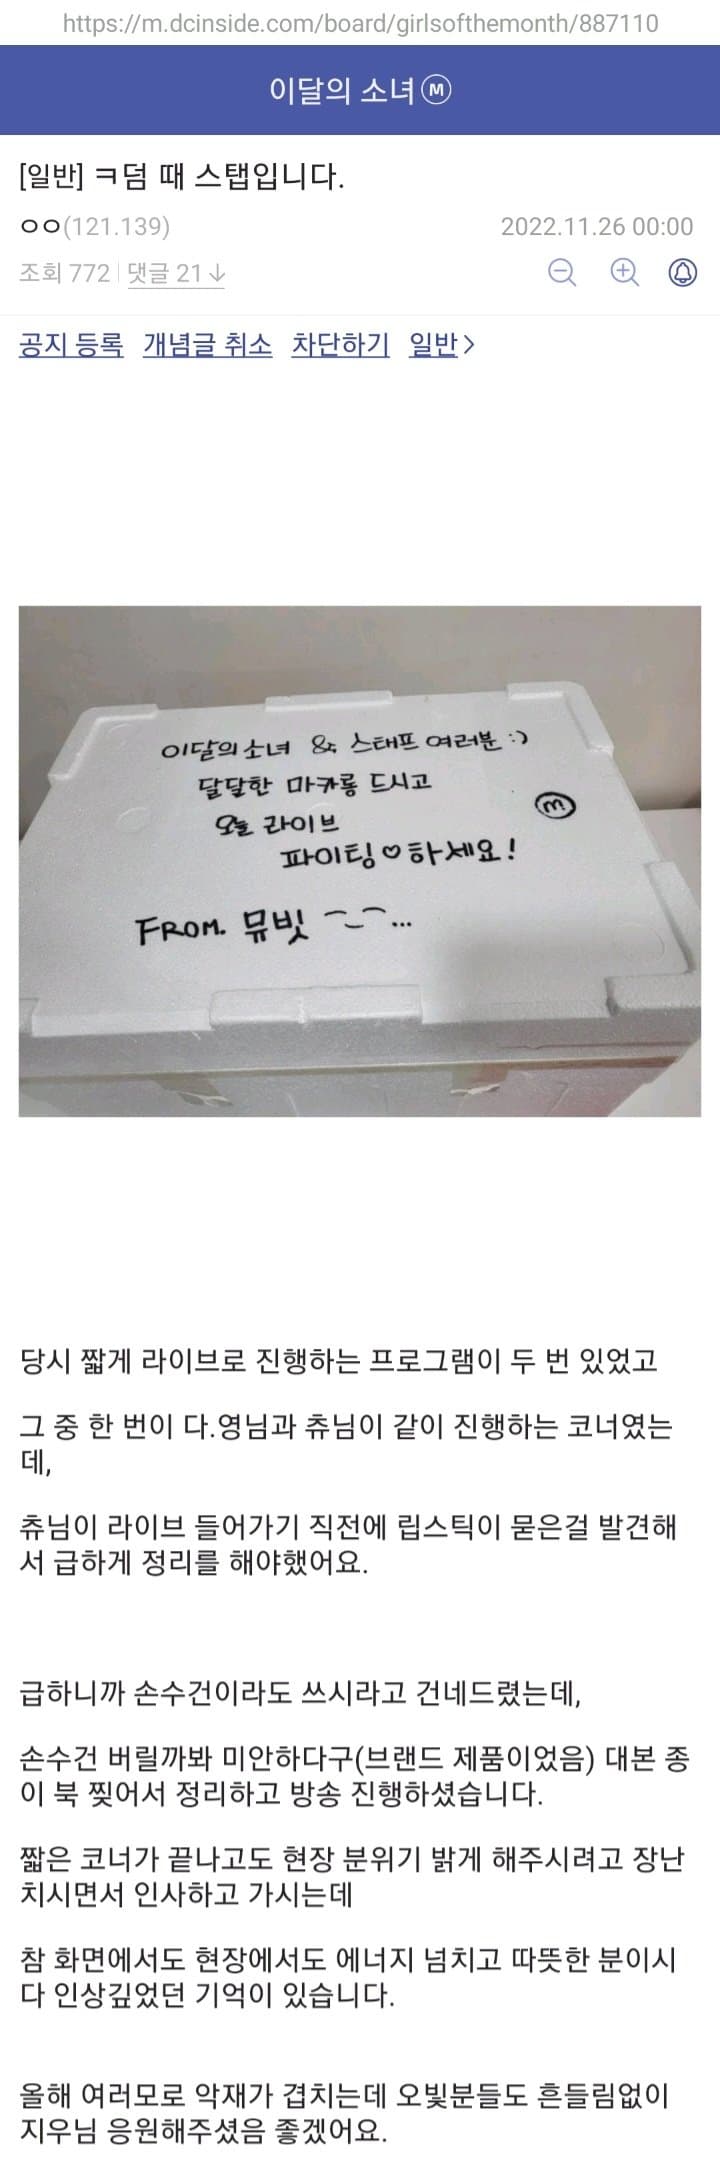 https://m.dcinside.com/board/girlsofthemonth/887110
이달의 소녀 Ⓜ
[일반] ㅋ덤 때 스탭입니다.
ㅇㅇ(121.139)
2022.11.26 00:00
조회 772 | 댓글 21↓
공지 등록 개념글 취소 차단하기 일반 >
이달의소녀 & 스태프 여러분 :)
달달한 마카롱 드시고
오늘 라이브
ⓜ
파이팅♡하세요!
FROM. 뮤빗 ⌒_⌒...
당시 짧게 라이브로 진행하는 프로그램이 두 번 있었고
그 중 한 번이 다.영님과 츄님이 같이 진행하는 코너였는
데,
츄님이 라이브 들어가기 직전에 립스틱이 묻은걸 발견해
서 급하게 정리를 해야했어요.
급하니까 손수건이라도 쓰시라고 건네드렸는데,
손수건 버릴까봐 미안하다구(브랜드 제품이었음) 대본 종
이 북 찢어서 정리하고 방송 진행하셨습니다.
짧은 코너가 끝나고도 현장 분위기 밝게 해주시려고 장난
치시면서 인사하고 가시는데
참 화면에서도 현장에서도 에너지 넘치고 따뜻한 분이시
다 인상깊었던 기억이 있습니다.
올해 여러모로 악재가 겹치는데 오빛분들도 흔들림없이
지우님 응원해주셨음 좋겠어요.